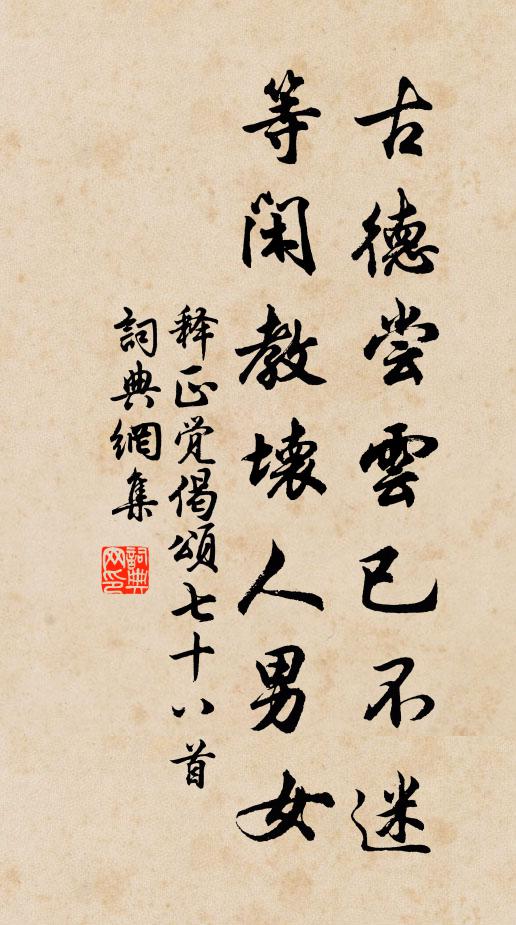 古德尝雲已不迷
等闲教壊人男女
释正觉偈頌七十八首
詞典網集
詞典网印